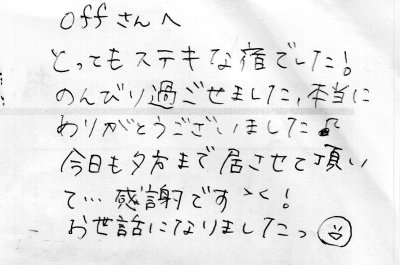 offさんへ
とってもステキな宿でした!
のんびり過ごせました、本当に
ありがとうございました♪
今日も夕方まで居させて頂い
て…感謝です!
お世話になりましたっ